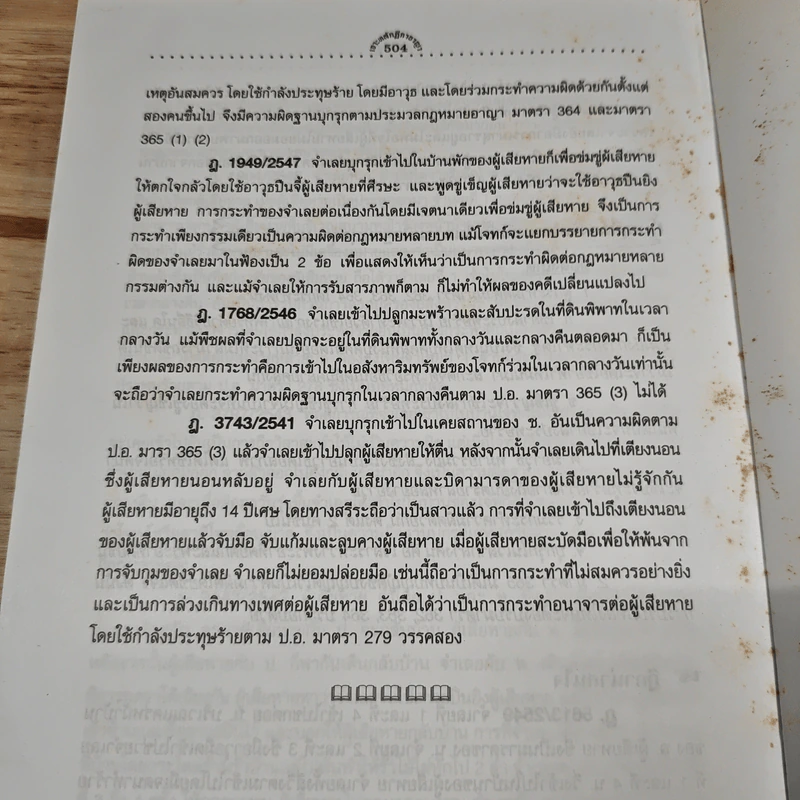 เจาะหลักฎีกาอาญา
504
เหตุอันสมควร โดยใช้กำลังประทุษร้าย โดยมีอาวุธ และโดยร่วมกระทำความผิดด้วยกันตั้งแต่
สองคนขึ้นไป จึงมีความผิดฐานบุกรุกตามประมวลกฎหมายอาญา มาตรา 364 และมาตรา
365 (1) (2)
ฎ. 1949/2547 จำเลยบุกรุกเข้าไปในบ้านพักของผู้เสียหายก็เพื่อข่มขู่ผู้เสียหาย
ให้ตกใจกลัวโดยใช้อาวุธปืนจี้ผู้เสียหายที่ศีรษะ และพูดขู่เข็ญผู้เสียหายว่าจะใช้อาวุธปืนยิง
ผู้เสียหาย การกระทำของจำเลยต่อเนื่องกันโดยมีเจตนาเดียวเพื่อข่มขู่ผู้เสียหาย จึงเป็นการ
กระทำเพียงกรรมเดียวเป็นความผิดต่อกฎหมายหลายบท แม้โจทก์จะแยกบรรยายการกระทำ
ผิดของจำเลยมาในฟ้องเป็น 2 ข้อ เพื่อแสดงให้เห็นว่าเป็นการกระทำผิดต่อกฎหมายหลาย
กรรมต่างกัน และแม้จำเลยให้การรับสารภาพก็ตาม ก็ไม่ทำให้ผลของคดีเปลี่ยนแปลงไป
ฎ. 1768/2546 จำเลยเข้าไปปลูกมะพร้าวและสับปะรดในที่ดินพิพาทในเวลา
กลางวัน แม้พืชผลที่จำเลยปลูกจะอยู่ในที่ดินพิพาททั้งกลางวันและกลางคืนตลอดมา ก็เป็น
เพียงผลของการกระทำคือการเข้าไปในอสังหาริมทรัพย์ของโจทก์ร่วมในเวลากลางวันเท่านั้น
จะถือว่าจำเลยกระทำความผิดฐานบุกรุกในเวลากลางคืนตาม ป.อ. มาตรา 365 (3) ไม่ได้
ฎ. 3743/2541 จำเลยบุกรุกเข้าไปในเคยสถานของ ช. อันเป็นความผิดตาม
ป.อ. มารา 365 (3) แล้วจำเลยเข้าไปปลุกผู้เสียหายให้ตื่น หลังจากนั้นจำเลยเดินไปที่เตียงนอน
ซึ่งผู้เสียหายนอนหลับอยู่ จำเลยกับผู้เสียหายและบิดามารดาของผู้เสียหายไม่รู้จักกัน
ผู้เสียหายมีอายุถึง 14 ปีเศษ โดยทางสรีระถือว่าเป็นสาวแล้ว การที่จำเลยเข้าไปถึงเตียงนอน
ของผู้เสียหายแล้วจับมือ จับแก้มและลูบคางผู้เสียหาย เมื่อผู้เสียหายสะบัดมือเพื่อให้พ้นจาก
การจับกุมของจำเลย จำเลยก็ไม่ยอมปล่อยมือ เช่นนี้ถือว่าเป็นการกระทำที่ไม่สมควรอย่างยิ่ง
และเป็นการล่วงเกินทางเพศต่อผู้เสียหาย อันถือได้ว่าเป็นการกระทำอนาจารต่อผู้เสียหาย
โดยใช้กำลังประทุษร้ายตาม ป.อ. มาตรา 279 วรรคสอง